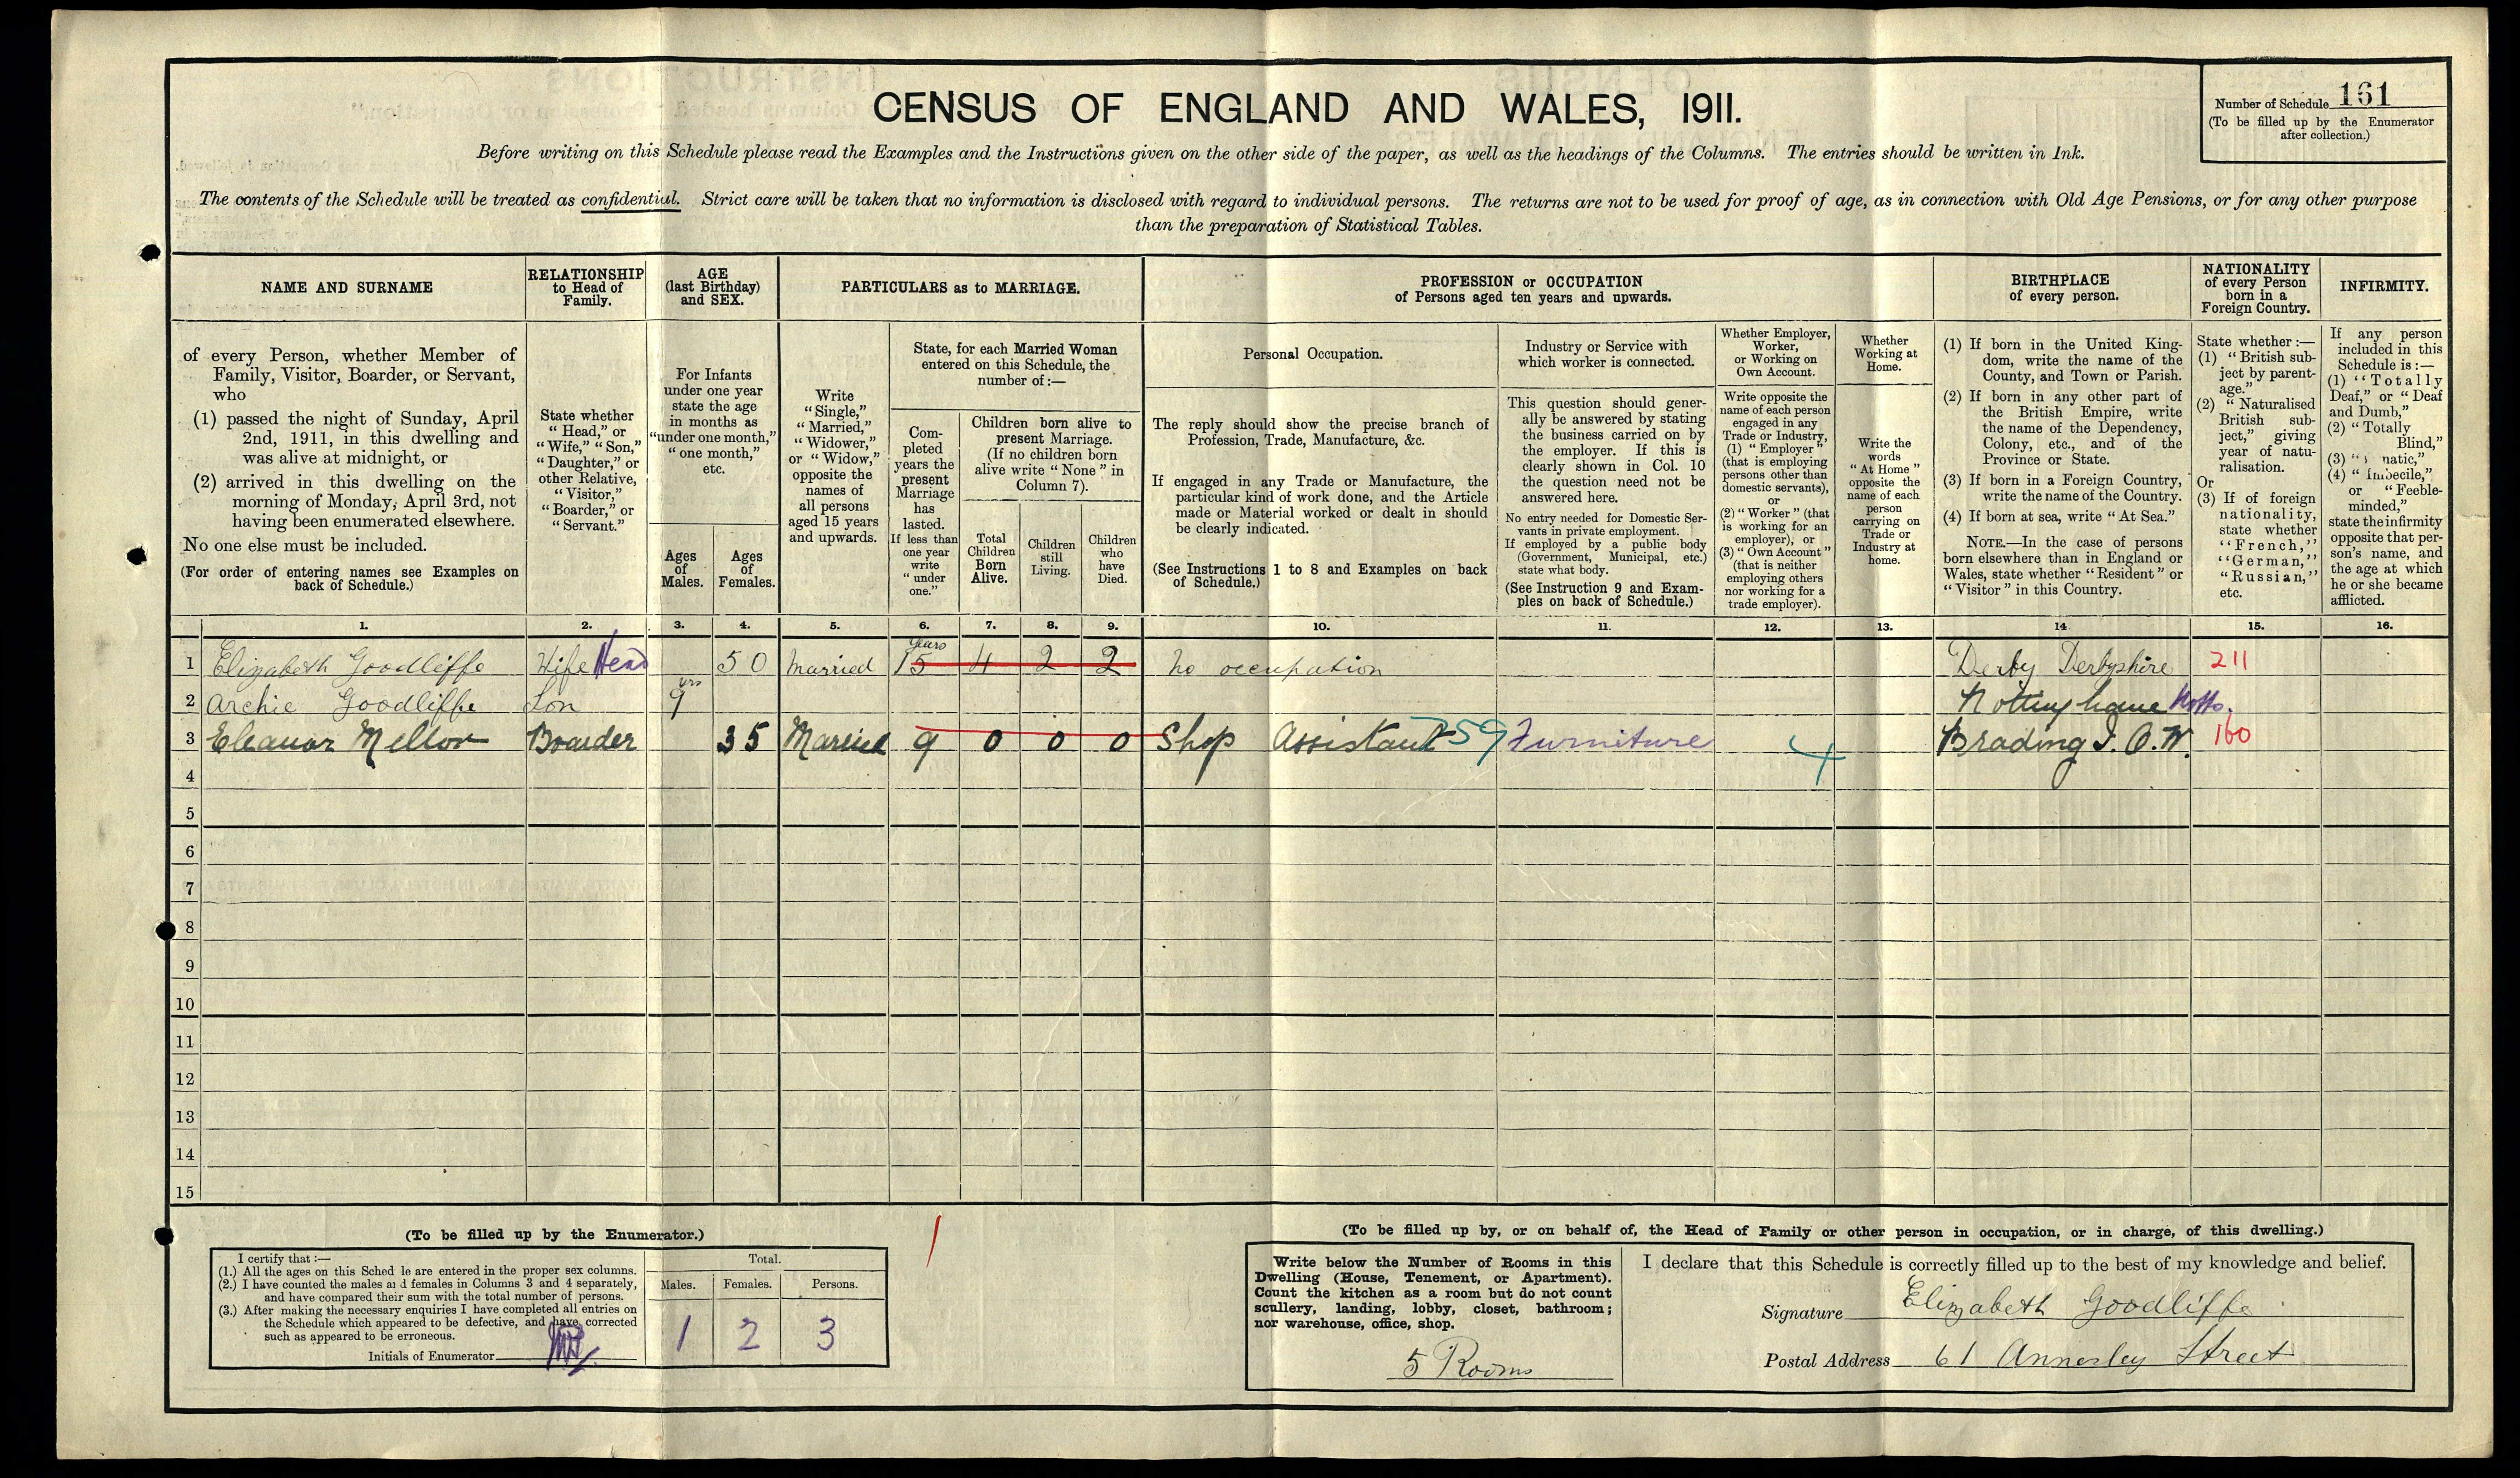 CENSUS OF ENGLAND AND WALES, 1911.
Number of Schedule 161
(To be filled up by the Enumerator
after collection.)
Before writing on this Schedule please read the Examples and the Instructions given on the other side of the paper, as well as the headings of the Columns. The entries should be written in Ink.
The contents of the Schedule will be treated as confidential. Strict care will be taken that no information is disclosed with regard to individual persons. The returns are not to be used for proof of age, as in connection with Old Age Pensions, or for any other purpose
than the preparation of Statistical Tables.
NAME AND SURNAME
of every Person, whether Member of
Family, Visitor, Boarder, or Servant,
who
(1) passed the night of Sunday, April
2nd, 1911, in this dwelling and
was alive at midnight, or
(2) arrived in this dwelling on the
morning of Monday, April 3rd, not
having been enumerated elsewhere.
No one else must be included.
(For order of entering names see Examples on
back of Schedule.)
RELATIONSHIP
to Head of
Family.
State whether
"Head," or
"Wife," "Son,"
"Daughter," or
other Relative,
"Visitor,"
"Boarder," or
"Servant."
AGE
(last Birthday)
and SEX.
For Infants
under one year
state the age
in months as
"under one month,"
"one month,"
etc.
Ages
of
Males.
Ages
of
Females.
PARTICULARS as to MARRIAGE.
Write
"Single,"
"Married,"
"Widower,"
or "Widow,"
opposite the
names of
all persons
aged 15 years
and upwards.
State, for each Married Woman
entered on this Schedule, the
number of:—
Com-
pleted
years the
present
Marriage
has
lasted.
If less than
one year
write
"under
one."
Children born alive to
present Marriage.
(If no children born
alive write "None" in
Column 7).
Total
Children
Born
Alive.
Children
still
Living.
Children
who
have
Died.
PROFESSION or OCCUPATION
of Persons aged ten years and upwards.
Personal Occupation.
The reply should show the precise branch of
Profession, Trade, Manufacture, &c.
If engaged in any Trade or Manufacture, the
particular kind of work done, and the Article
made or Material worked or dealt in should
be clearly indicated.
(See Instructions 1 to 8 and Examples on back
of Schedule.)
Industry or Service with
which worker is connected.
This question should gener-
ally be answered by stating
the business carried on by
the employer. If this is
clearly shown in Col. 10
the question need not be
answered here.
No entry needed for Domestic Ser-
vants in private employment.
If employed by a public body
(Government, Municipal, etc.)
state what body.
(See Instruction 9 and Exam-
ples on back of Schedule.)
Whether Employer,
Worker,
or Working on
Own Account.
Write opposite the
name of each person
engaged in any
Trade or Industry,
(1) "Employer"
(that is employing
persons other than
domestic servants),
or
(2) "Worker" (that
is working for an
employer), or
(3) "Own Account"
(that is neither
employing others
nor working for a
trade employer).
Whether
Working at
Home.
Write the
words
"At Home"
opposite the
name of each
person
carrying on
Trade or
Industry at
home.
BIRTHPLACE
of every person.
(1) If born in the United King-
dom, write the name of the
County, and Town or Parish.
(2) If born in any other part of
the British Empire, write
the name of the Dependency,
Colony, etc., and of the
Province or State.
(3) If born in a Foreign Country,
write the name of the Country.
(4) If born at sea, write "At Sea."
NOTE.—In the case of persons
born elsewhere than in England or
Wales, state whether "Resident" or
"Visitor" in this Country.
NATIONALITY
of every Person
born in a
Foreign Country.
State whether:—
(1) "British sub-
ject by parent-
age."
(2) "Naturalised
British sub-
ject," giving
year of natu-
ralisation.
Or
(3) If of foreign
nationality,
state whether
"French,"
"German,"
"Russian,"
etc.
INFIRMITY.
If any person
included in this
Schedule is:—
(1) "Totally
Deaf," or "Deaf
and Dumb,"
(2) "Totally
Blind,"
(3) "natic,"
(4) "Imbecile,"
or "Feeble-
minded,"
state the infirmity
opposite that per-
son's name, and
the age at which
he or she became
afflicted.
1. 2. 3. 4. 5. 6. 7. 8. 9. 10. 11. 12. 13. 14. 15. 16.
years
1 Elizabeth Goodliffe Wife Head 50 Married 15 4 2 2 no occupation Derby Derbyshire 211
yrs
2 Archie Goodliffe Son 9 Nottinghame Notts.
3 Eleanor Mellor Boarder 35 Married 9 0 0 0 Shop Assistant 59 Furniture 4 Brading I. O. W. 160
4
5
6
7
8
9
10
11
12
13
14
15
(To be filled up by the Enumerator.)
I certify that:—
(1.) All the ages on this Sched le are entered in the proper sex columns.
(2.) I have counted the males and females in Columns 3 and 4 separately,
and have compared their sum with the total number of persons.
(3.) After making the necessary enquiries I have completed all entries on
the Schedule which appeared to be defective, and have corrected
such as appeared to be erroneous.
Initials of Enumerator
Total.
Males. Females. Persons.
1 2 3
(To be filled up by, or on behalf of, the Head of Family or other person in occupation, or in charge, of this dwelling.)
Write below the Number of Rooms in this
Dwelling (House, Tenement, or Apartment).
Count the kitchen as a room but do not count
scullery, landing, lobby, closet, bathroom;
nor warehouse, office, shop.
5 Rooms
I declare that this Schedule is correctly filled up to the best of my knowledge and belief.
Signature Elizabeth Goodliffe
Postal Address 61 Annesley Street